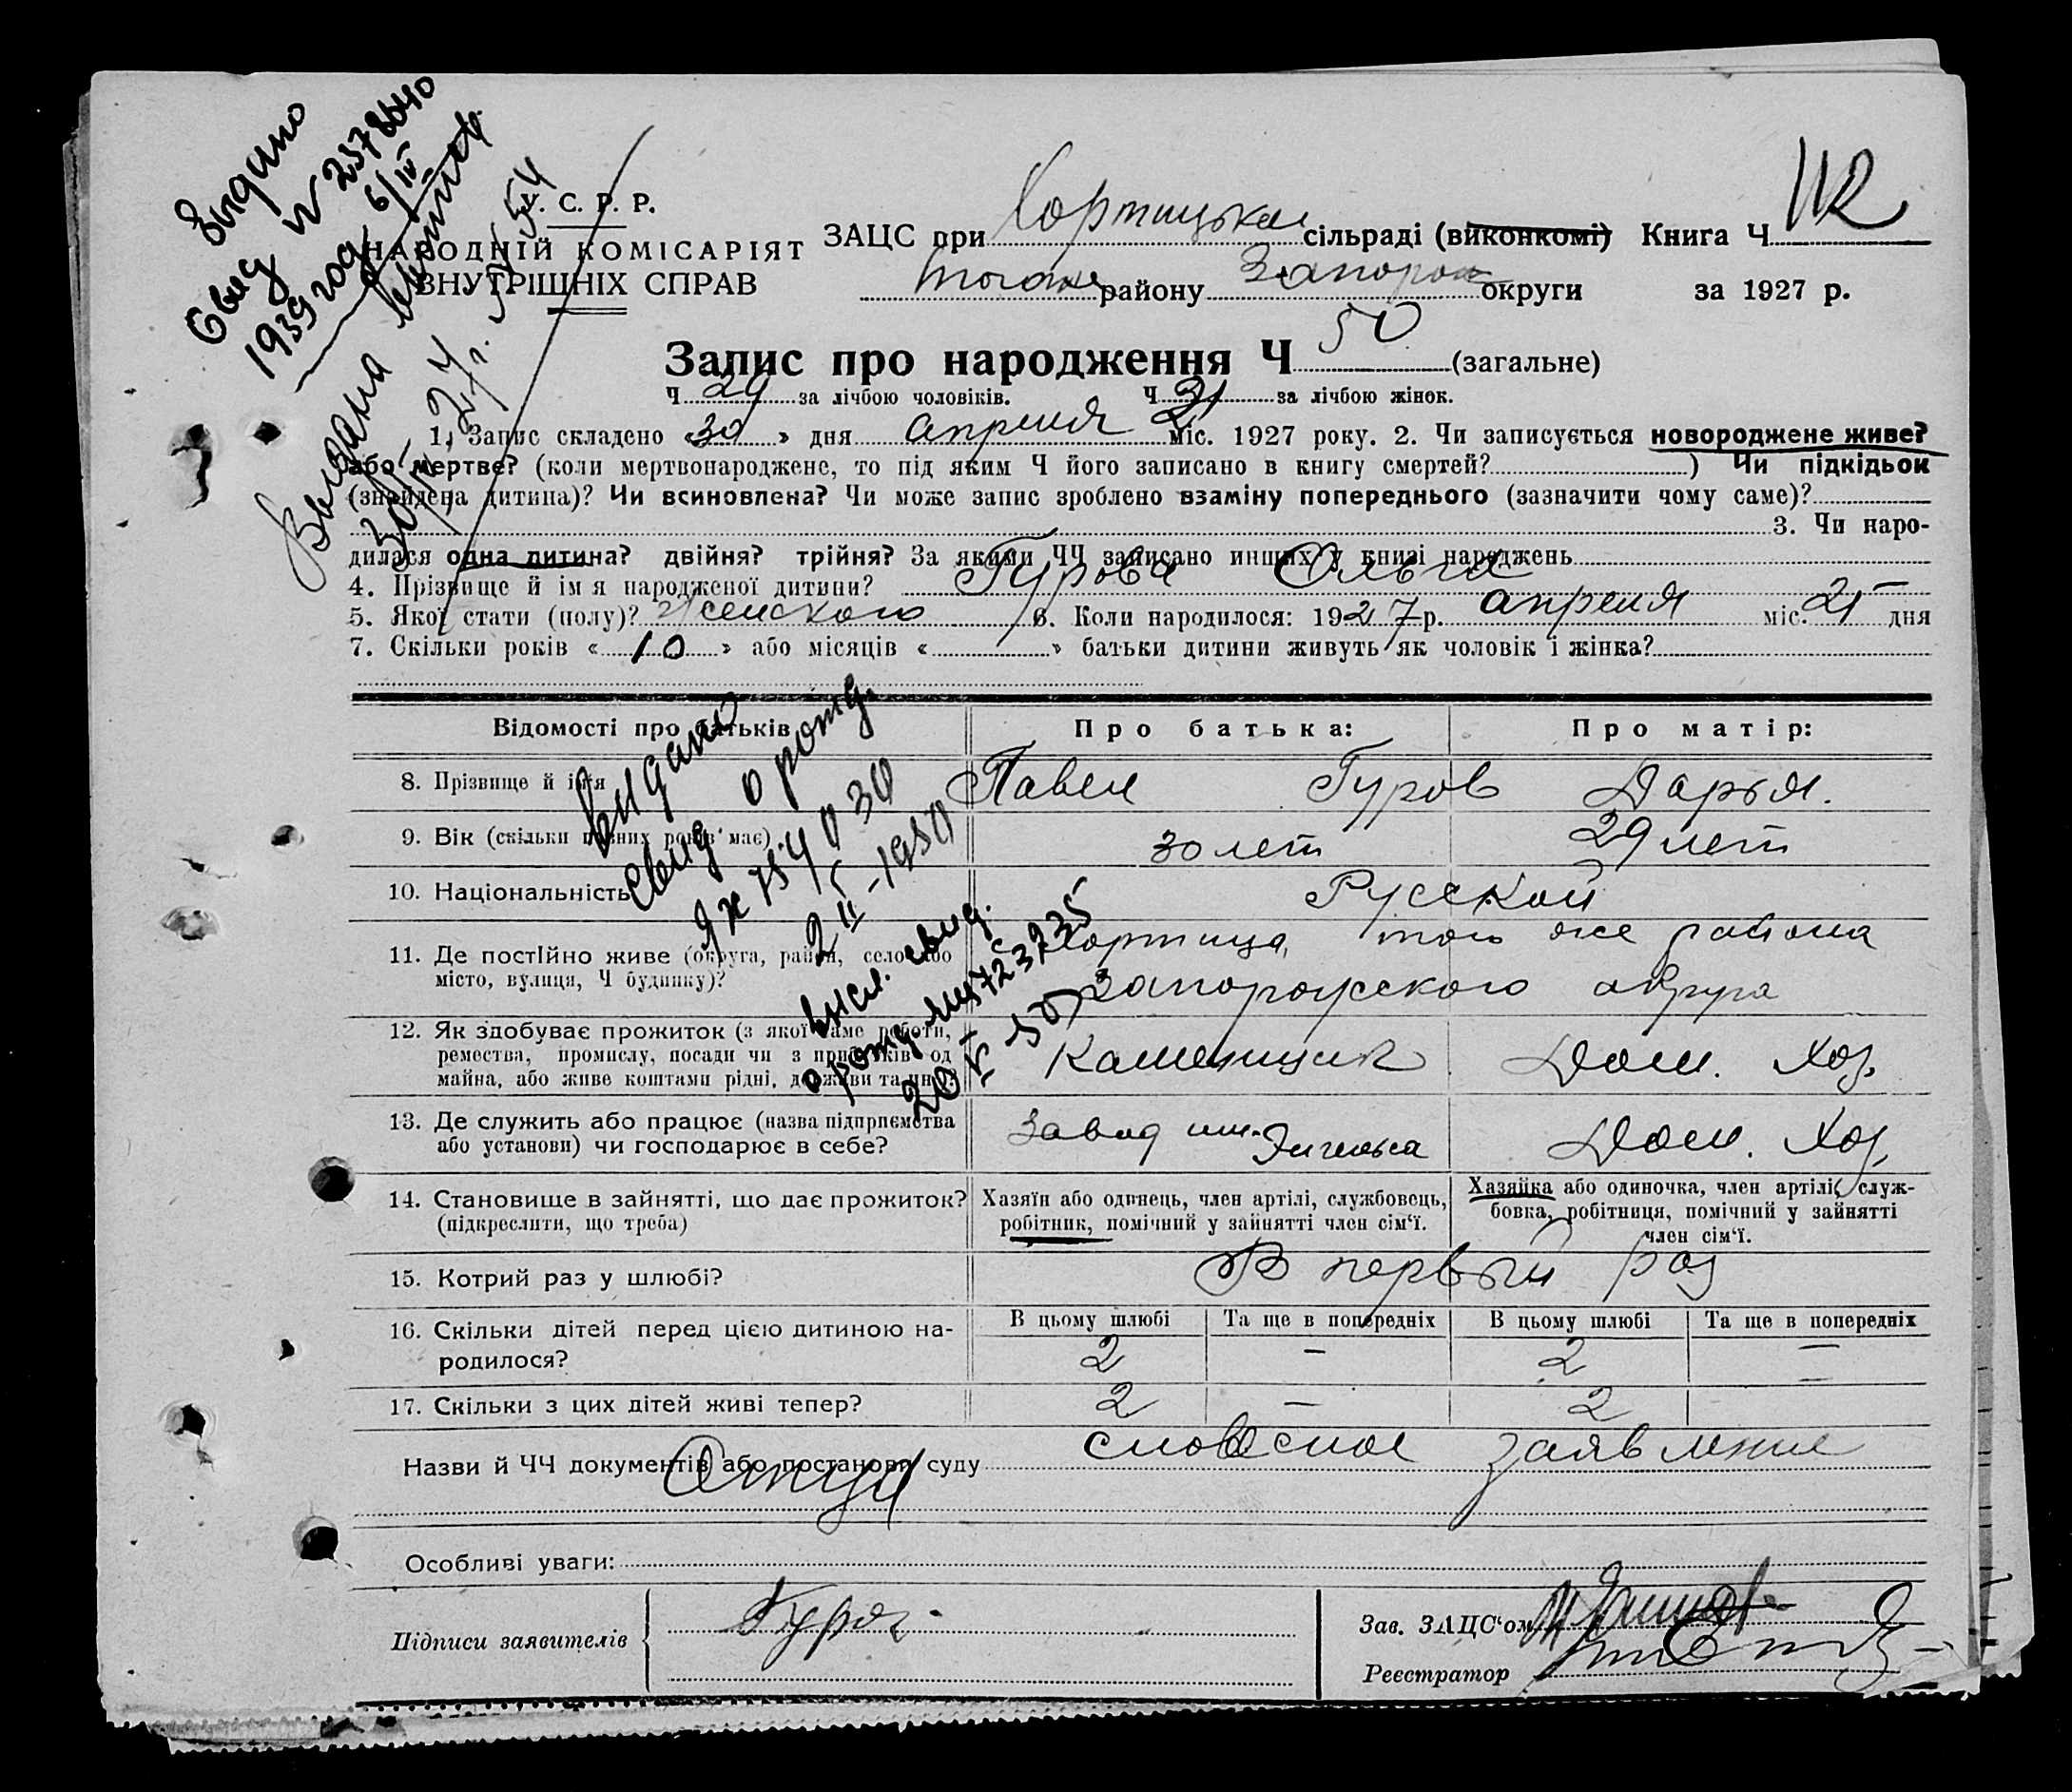 Выдано
Свид № 2378640
1939 год 6/IV
Выдана
У. С. Р. Р.
НАРОДНІЙ КОМІСАРІЯТ
ВНУТРІШНІХ СПРАВ
ЗАЦС при Хортицькая сільраді (виконкомі) Книга Ч
того же району Запорож округи за 1927 р.
Запис про народження Ч 50 (загальне)
Ч 29 за лічбою чоловіків. Ч 21 за лічбою жінок.
1. Запис складено « 30 » дня апреля міс. 1927 року. 2. Чи записується новороджене живе?
або мертве? (коли мертвонароджене, то під яким Ч його записано в книгу смертей? ) Чи підкідьок
(знайдена дитина)? Чи всиновлена? Чи може запис зроблено взаміну попереднього (зазначити чому саме)?
3. Чи наро-
дилася одна дитина? двійня? трійня? За якими ЧЧ записано инших у книзі народжень
4. Прізвище й ім я народженої дитини? Гурова Ольга
5. Якої стати (полу)? Женского 6. Коли народилося: 1927 р. апреля міс. дня
7. Скільки років « 10 » або місяців « » батьки дитини живуть як чоловік і жінка?
Відомості про батьків Про батька: Про матір:
8. Прізвище й ім'я Павел Гуров Дарья.
9. Вік (скільки повних років має) 30 лет 29 лет
10. Національність Русской
11. Де постійно живе (округа, район, село або Хортица, того же района
місто, вулиця, Ч будинку)? Запорожского округа
12. Як здобуває прожиток (з якої саме роботи,
ремества, промислу, посади чи з прибутків од Каменщик Дом. Хоз.
майна, або живе коштами рідні, держави та инш.?
13. Де служить або працює (назва підприємства Завод им. Энгельса Дом. Хоз.
або установи) чи господарює в себе?
14. Становище в зайнятті, що дає прожиток? Хазяїн або одинець, член артілі, службовець, Хазяйка або одиночка, член артілі, служ-
(підкреслити, що треба) робітник, помічний у зайнятті член сім'ї. бовка, робітниця, помічний у зайнятті
член сім'ї.
15. Котрий раз у шлюбі? В первый раз
16. Скільки дітей перед цією дитиною на- В цьому шлюбі Та ще в попередніх В цьому шлюбі Та ще в попередніх
родилося? 2 — 2 —
17. Скільки з цих дітей живі тепер? 2 — 2 —
Выдано
свид о рожд.
2/II-1950
высл. свид.
о рожд.
Назви й ЧЧ документів або постанови суду словесное заявление
Отца
Особливі уваги:
Підписи заявителів Гуров
Зав. ЗАЦС'ом
Реєстратор